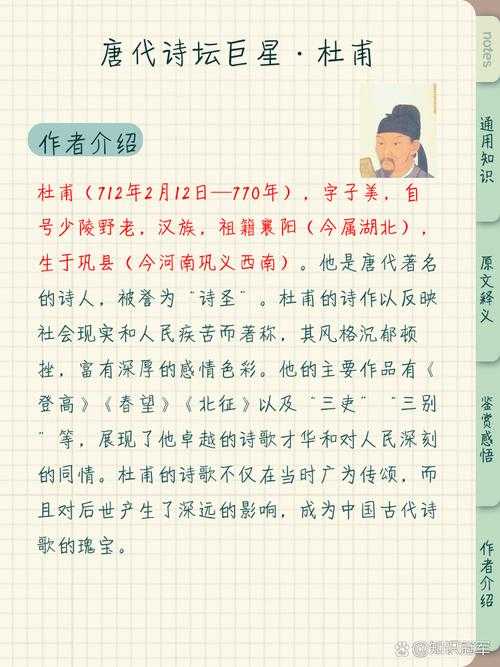 唐代诗坛巨星·杜甫
作者介绍
杜甫（712年2月12日—770年），字子美，自
号少陵野老，汉族，祖籍襄阳（今属湖北），
生于巩县（今河南巩义西南）。他是唐代著名
的诗人，被誉为“诗圣”。杜甫的诗作以反映
社会现实和人民疾苦而著称，其风格沉郁顿
挫，富有深厚的感情色彩。他的主要作品有《
登高》《春望》《北征》以及“三吏”“三别
”等，展现了他卓越的诗歌才华和对人民深刻
的同情。杜甫的诗歌不仅在当时广为传颂，而
且对后世产生了深远的影响，成为中国古代诗
歌的瑰宝。
notes
通用知识
原文释义
鉴赏感悟
作者介绍